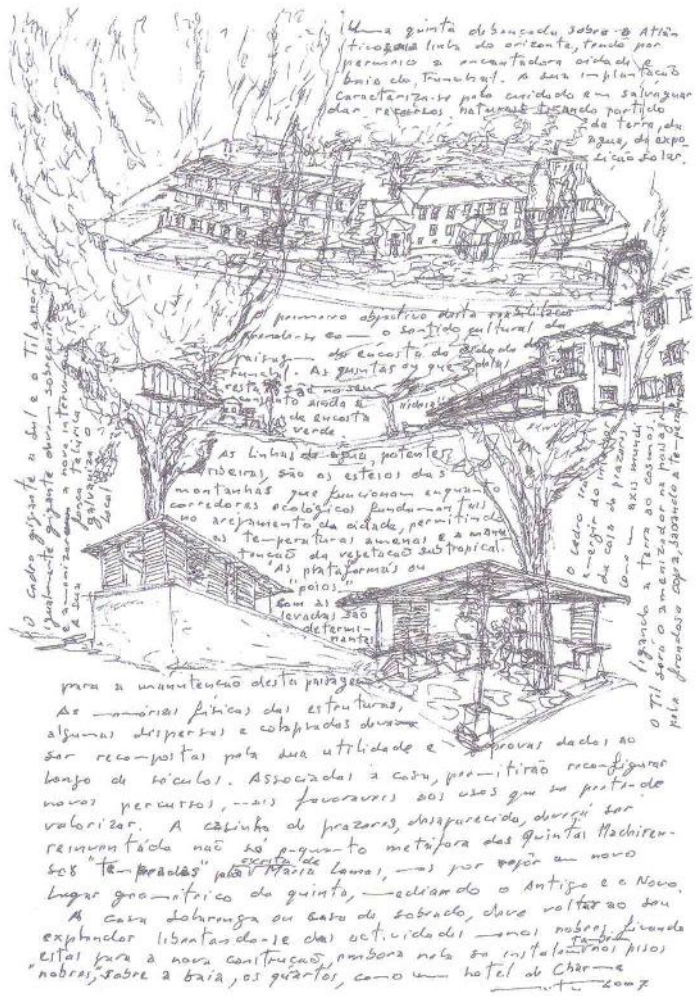 Uma quinta debruçada sobre o Atlân
tico pela linha do orizonte, tendo por
a encantadora cidade e
baía do Funchal. A sua implantação
caracteriza-se pelo cuidado em salvaguar
dar recursos naturais tirando partido
da terra, da
água, da expo
sição solar.
O primeiro objectivo desta
prende-se co— o sentido cultural da
paisagem da encosta do
Funchal. As quintas ou que
resta são no seu
conjunto ainda a
de encosta
verde
As linhas de agua, potentes
ribeiras, são os esteios das
montanhas que funcionam enquanto
corredores ecológicos fundamentais
no arejamento da cidade, permitindo
as temperaturas amenas e a manu
tencão da vegetacão subtropical.
As plataformas ou
"poios"
com as
levadas são
determi-
nantes
para a manutenção desta paisagem.
As memórias físicas das estruturas,
algumas dispersas e colapsadas devem
ser recompostas pela sua utilidade e provas dadas ao
longo de séculos. Associadas à casa, permitirão reconfigurar
novos percursos, mais favoraveis aos usos que se pretende
valorizar. A casinha de prazeres, desaparecida, deverá ser
reinventada não só enquanto metáfora das quintas Madeiren-
ses "temperadas" pela escrita de Maria Lamas, mas por repôr um novo
lugar geométrico da quinta, mediando o Antigo e o Novo.
A casa sobrenga ou casa de sobrado, deve voltar ao seu
explendor libertando-se das actividades menos nobres ficando
estas para a nova construção, embora nela se instalem também nos pisos
"nobres," sobre a baía, os quartos, como um hotel de Charme
2007
O cedro gigante a Sul e o Til a norte
igualmente gigante
e a nova
A sua força telúrica
galvaniza o
local
O cedro
emergir do interior
da casa de prazeres
como um axis mundi
ligando a terra ao cosmos.
O Til será o amenizador na paisagem
pela frondosa copa,